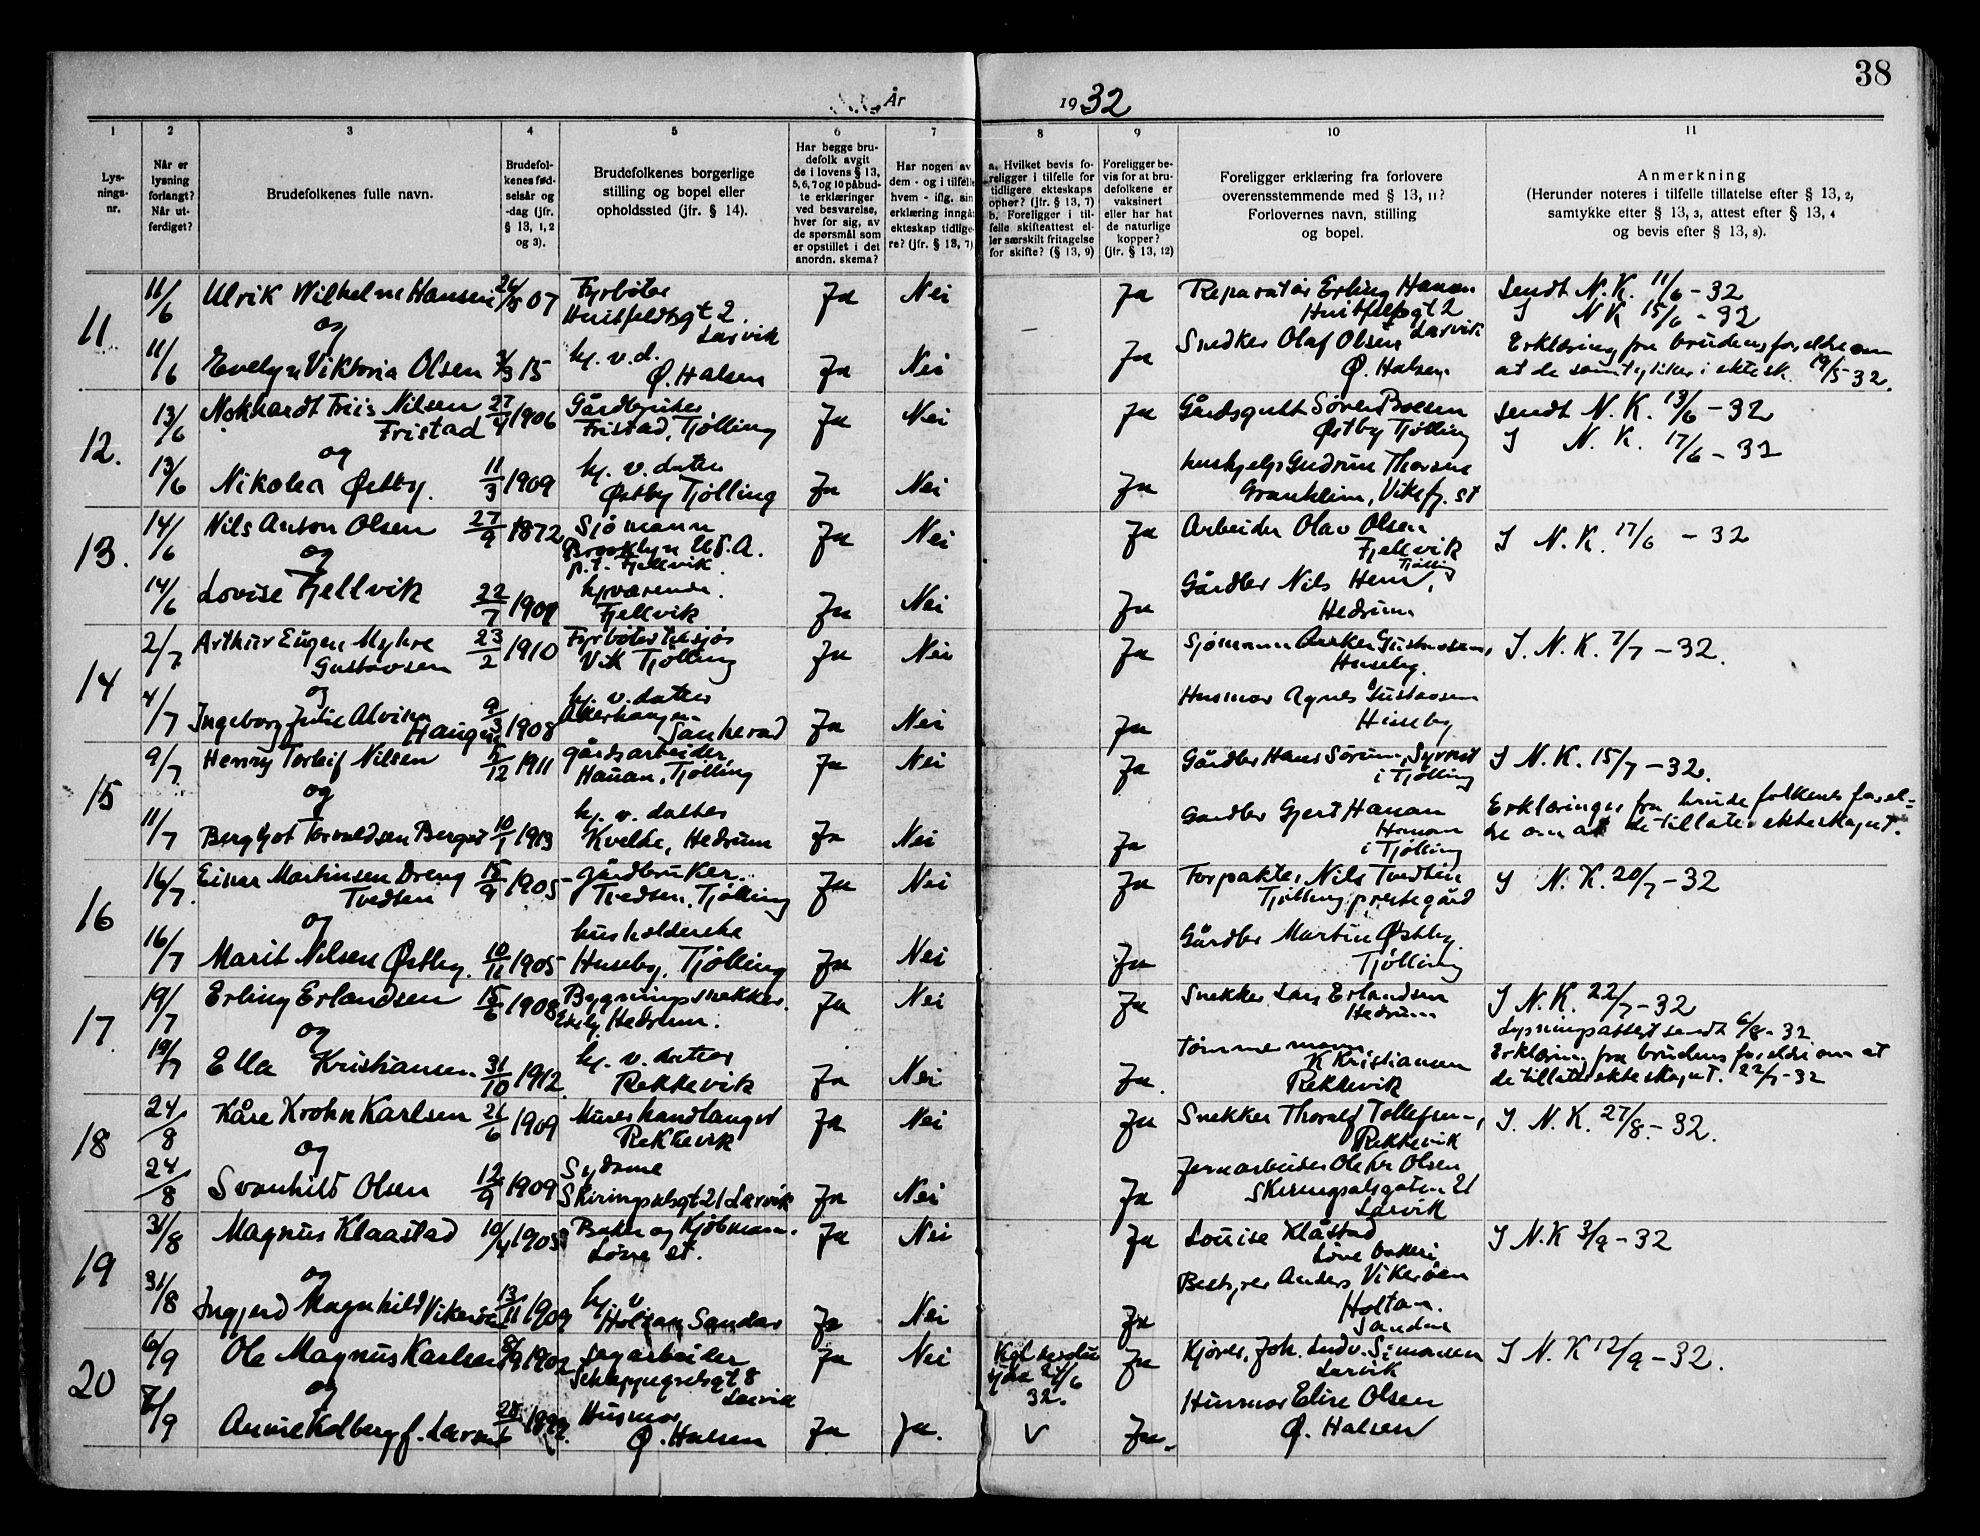 38
År 1932
1 2 3 4 5 6 7 8 9 10 11
Lysnings-nr.
Når er lysning forlangt? Når utferdiget?
Brudefolkenes fulle navn.
Brudefolkenes fødselsår og -dag (jfr. § 13, 1, 2 og 3).
Brudefolkenes borgerlige stilling og bopel eller opholdssted (jfr. § 14).
Har begge brudefolk avgit de i lovens § 13, 5, 6, 7 og 10 påbudte erklæringer ved besvarelse, hver for sig, av de spørsmål som er opstillet i det anordn. skema?
Har nogen av dem - og i tilfelle hvem - iflg. sin erklæring inngått ekteskap tidligere? (jfr. § 13, 7)
a. Hvilket bevis foreligger i tilfelle for tidligere ekteskaps ophør? (jfr. § 13, 7) b. Foreligger i tilfelle skifteattest eller særskilt fritagelse for skifte? (§ 13, 9)
Foreligger bevis for at brudefolkene er vaksinert eller har hat de naturlige kopper? (jfr. § 13, 12)
Foreligger erklæring fra forlovere overensstemmende med § 13, 11? Forlovernes navn, stilling og bopel.
Anmerkning (Herunder noteres i tilfelle tillatelse efter § 13, 2, samtykke etter § 13, 3, attest efter § 13, 4 og bevis efter § 13, 8).
11
11/6 Ulrik Wilhelm Hansen 07 Fyrbøter Huitfeldtsgt 2. Larvik Ja Nei Ja Reparatør Erling Hansen 2 Larvik Sendt N.K. 11/6 - 32
J N.K 15/6 - 32
og
11/6 Evelyn Viktoria Olsen 15 hj. v. d. Ø. Halsen Ja Nei Ja Snedker Olaf Olsen Ø. Halsen Erklæring fra brudens foreldre om at de samtykker i ektesk. 19/5-32.
12.
13/6 Friis Nilsen Fristad 27/4 1906 Gårdbruker Fristad, Tjølling Ja Nei Ja Gårdsgutt Søren Østby Tjølling sendt N.K. 13/6 - 32
J N.K. 17/6 - 32
og
13/6 Nikolea Østby. 11/3 1909 hj. v. datter Østby Tjølling Ja Nei Ja hushjelp Gudrun st
13.
14/6 Nils Anton Olsen 27/9 1872 Sjømann Brooklyn U.S.A. p.t. Fjellvik. Ja Nei Ja Arbeider Olav Olsen Fjellvik Tjølling J N.K. 17/6 - 32
og
14/6 Lovise Fjellvik 22/7 hjværende. Fjellvik Ja Nei Ja Gårdbr Nils Hem, Hedrum
14
2/7 Arthur Eugen Myhre Gustavsen 23/2 1910 Fyrbøter Vik Tjølling Ja Nei Ja Sjømann Gustavsen, Huseby. J. N.K. 7/7 - 32.
og
4/7 Ingeborg Julie Alvise Haugen 9/3 1908 hj. v. datter Sauherad Ja Nei Ja Husmor Agnes Gustavsen Huseby
15
9/7 Henry Torleif Nilsen 5/12 1911 gårdsarbeider Hauan, Tjølling Ja Nei Ja Gårdbr Hans Sørum, i Tjølling J N.K. 15/7 - 32.
og
11/7 Bergljot Torvaldsen Berget 10/1 1913 hj. v. datter Kvelde, Hedrum Ja Nei Ja Gardbr Gjert Hauan i Tjølling Erklæringer fra brudefolkenes foreldre om at de tillater ekteskapet.
16
16/7 Einar Martinsen Dreng Tvedten 15/9 1905 gårdbruker. Tvedten, Tjølling Ja Nei Ja Forpakter Nils Tvedten Tjølling prestegård J N.K. 20/7 - 32
og
16/7 Marit Nilsen Østby. 10/11 1905 husholderske Huseby, Tjølling Ja Nei Ja Gårdbr Martin Østby. Tjølling
17.
19/7 Erling Erlandsen 15/6 1908 Bygningssnekker. Hedrum. Ja Nei Ja Snekker Lars Erlandsen Hedrum J N.K. 22/7 - 32
Lysningsattest sendt 6/8 - 32
og
19/7 Ella Kristiansen 31/10 1912 hj. v. datter Rekkevik Ja Nei Ja. Tømmermann K Kristiansen Rekkevik Erklæring fra brudens foreldre om at de tillater ekteskapet. 22/7 - 32
18
24/8 Kåre Krohn Karlsen 21/6 1909 Murerhandlanger Rekkevik Ja Nei Ja Snekker Thoralf Tollefsen, Rekkevik J. N.K. 27/8 - 32.
og
24/8 Svanhild Olsen 12/9 1909 Sydame Skiringsalsgt 21 Larvik Ja Nei Ja Jernarbeider Ole Kr Olsen Skiringsalsgaten 21 Larvik
19
31/8 Magnus Klaastad 10/4 Baker og Kjøbmann. Løve st. Ja Nei Ja Louise Klåstad Løve bakeri J N.K 3/9 - 32
og
31/8 Ingjerd Magnhild Vikerøen 13/11 hj v Holtan Sandar Ja Nei Ja Bestyrer Anders Vikerøen Holtan. Sandar
20
6/9 Ole Magnus Karlsen 1902 Sagarbeider 8 Larvik Ja Nei 32. Ja Kjører, Joh. Ludv. Simonsen Larvik J N.K 12/9 - 32.
og
7/9 Anne Kolberg f. Larsen Husmor Ø. Halsen Ja Ja. V Ja. Husmor Elise Olsen Ø. Halsen